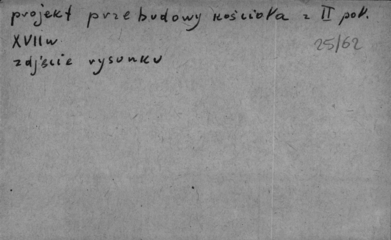 projekt przebudowy kościoła z II poł.
XVII w
25/62
zdjście rysunku